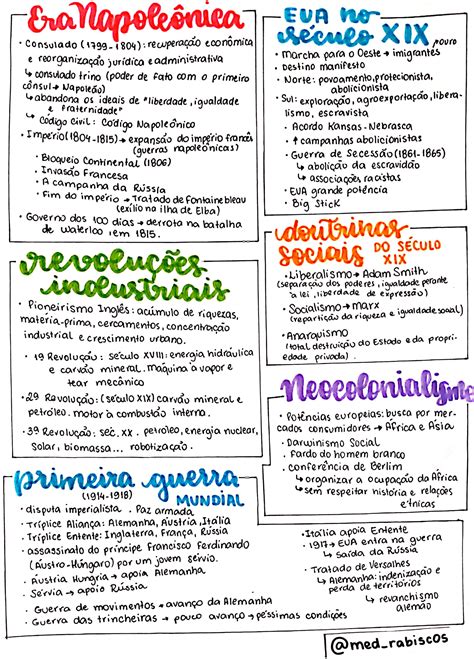 Era Napoleônica
• Consulado (1799 - 1804): recuperação econômica
e reorganização jurídica e administrativa
↳ consulado trino (poder de fato com o primeiro
cônsul → Napoleão)
↳ abandona os ideais de "liberdade, igualdade
e fraternidade"
↳ Código Civil: Código Napoleônico
• Império (1804-1815) → expansão do império francês
(guerras napoleônicas)
• Bloqueio Continental (1806)
• Invasão Francesa
• A campanha da Rússia
• Fim do império → Tratado de Fontainebleau
(exílio na ilha de Elba)
• Governo dos 100 dias → derrota na batalha
de Waterloo em 1815.
EUA no
século XIX
, ouro
• Marcha para o Oeste → imigrantes
• Destino manifesto
• Norte: povoamento, protecionista,
abolicionista
• Sul: exploração, agroexportação, libera-
lismo, escravista
• Acordo Kansas-Nebrasca
• ↑ campanhas abolicionistas
• Guerra de Secessão (1861-1865)
↳ abolição da escravidão
↳ associações racistas
• EUA grande potência
• Big Stick
revoluções
industriais
• Pioneirismo Inglês: acúmulo de riquezas,
matéria-prima, cercamentos, concentração
industrial e crescimento urbano.
• 1ª Revolução: século XVIII: energia hidráulica
e carvão mineral. Máquina à vapor e
tear mecânico
• 2ª Revolução: (século XIX) carvão mineral e
petróleo. motor à combustão interna.
• 3ª Revolução: séc. XX. petróleo, energia nuclear,
solar, biomassa... robotização.
doutrinas
sociais DO SÉCULO
XIX
• Liberalismo → Adam Smith
(separação dos poderes, igualdade perante
a lei, liberdade de expressão)
• Socialismo → Marx
(repartição da riqueza e igualdade social)
• Anarquismo
(total destruição do Estado e da proprie-
dade privada).
Neocolonialismo
• Potências europeias: busca por mer-
cados consumidores → África e Ásia
• Darwinismo Social
• Fardo do homem branco
• conferência de Berlim
↳ organizar a ocupação da África
↳ sem respeitar história e relações
étnicas
primeira guerra
(1914-1918) MUNDIAL
• disputa imperialista. Paz armada.
• Tríplice Aliança: Alemanha, Áustria, Itália
• Tríplice Entente: Inglaterra, França, Rússia
• assassinato do príncipe Francisco Ferdinando
(Áustro-Húngaro) por um jovem sérvio.
• Áustria Hungria → apoio Alemanha
• Sérvia → apoio Rússia
• Guerra de movimentos → avanço da Alemanha
• Guerra das trincheiras → pouco avanço → péssimas condições
• Itália apoia Entente
• 1917 → EUA entra na guerra
↳ saída da Rússia
• Tratado de Versalhes
↳ Alemanha: indenização e
perda de territórios
↳ revanchismo
alemão
@med_rabiscos